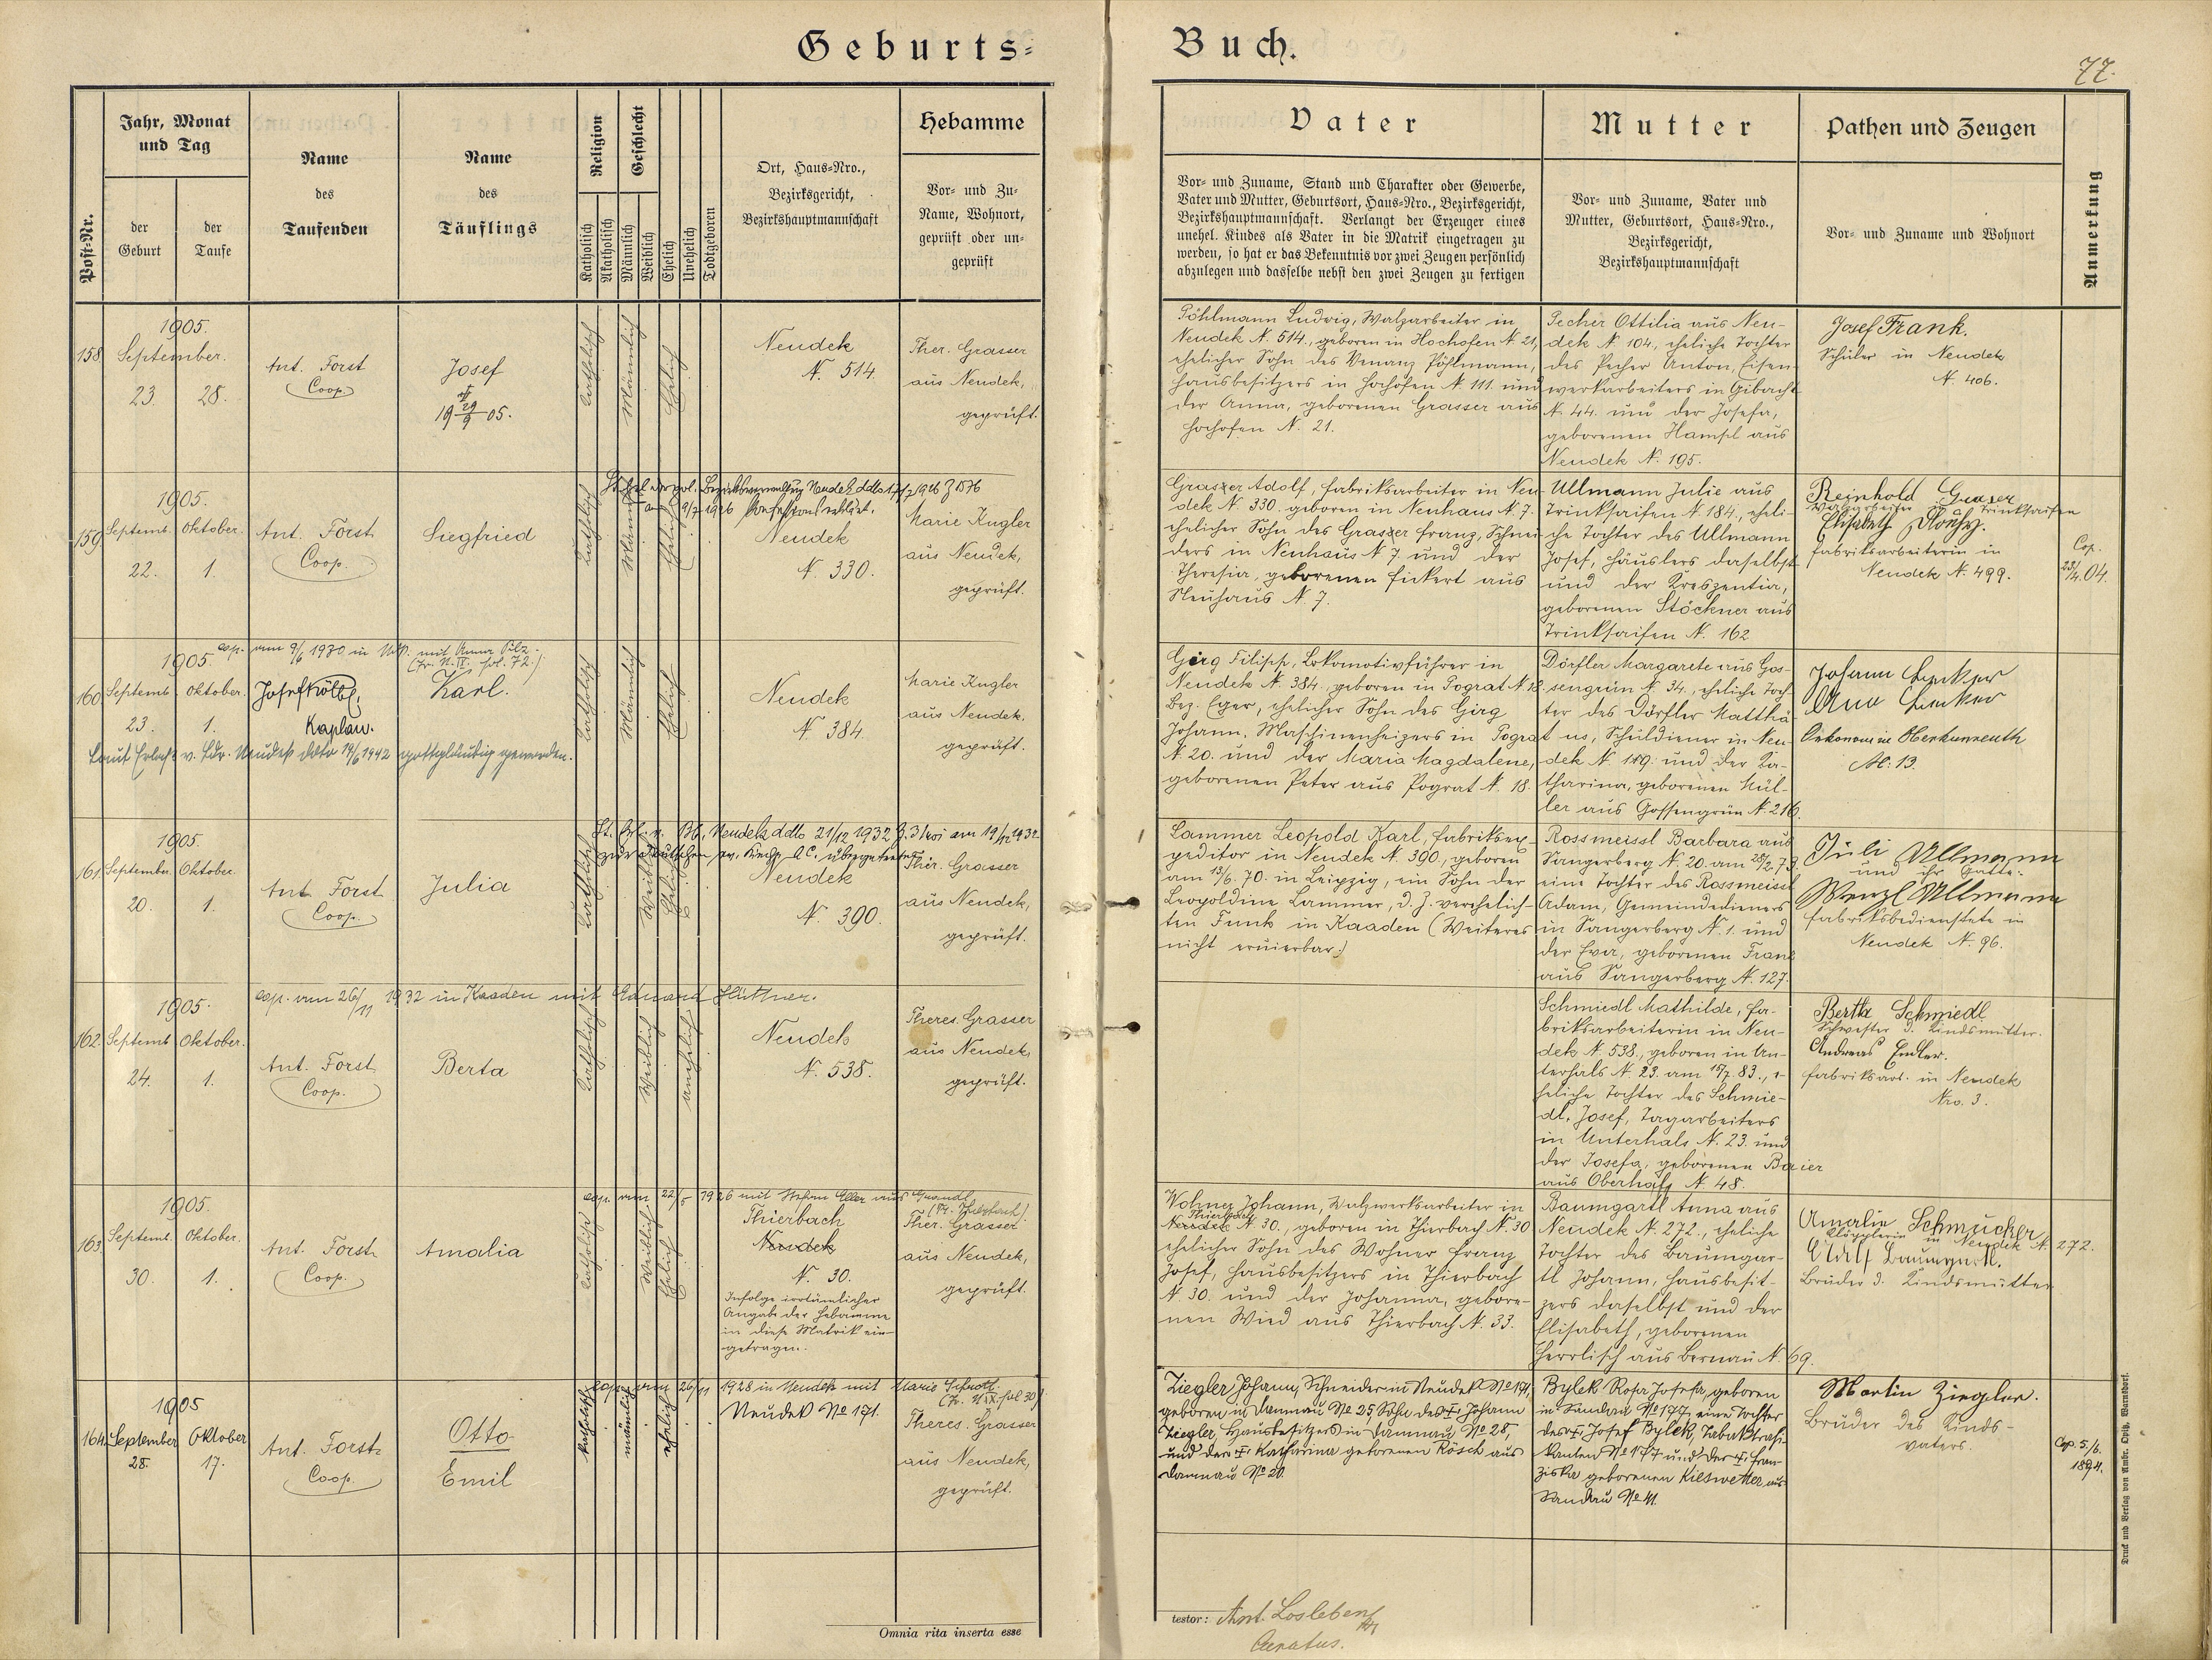 Geburts-
Buch.
77.
Post-Nr.
Jahr, Monat
und Tag
der
Geburt
der
Taufe
Name
des
Taufenden
Name
des
Täuflings
Religion
Katholisch
Akatholisch
Geschlecht
Männlich
Weiblich
Ehelich
Unehelich
Todtgeboren
Ort, Haus-Nro.,
Bezirksgericht,
Bezirkshauptmannschaft
Hebamme
Vor- und Zu-
Name, Wohnort,
geprüft oder un-
geprüft
Vater
Vor- und Zuname, Stand und Charakter oder Gewerbe,
Vater und Mutter, Geburtsort, Haus-Nro., Bezirksgericht,
Bezirkshauptmannschaft. Verlangt der Erzeuger eines
unehel. Kindes als Vater in die Matrik eingetragen zu
werden, so hat er das Bekenntnis vor zwei Zeugen persönlich
abzulegen und dasselbe nebst den zwei Zeugen zu fertigen
Mutter
Vor- und Zuname, Vater und
Mutter, Geburtsort, Haus-Nro.,
Bezirksgericht,
Bezirkshauptmannschaft
Pathen und Zeugen
Vor- und Zuname und Wohnort
Anmerkung
158
1905.
September.
23.
28.
Ant. Forst
Coop.
Josef
19 29/9 05.
Katholisch
Männlich
Ehelich
Neudek
N. 514.
Ther. Grasser
aus Neudek,
geprüft.
Pöhlmann Ludwig, Walzarbeiter in
Neudek N. 514., geboren in Hochofen N. 21,
ehelicher Sohn des Venanz Pöhlmann,
Hausbesitzers in Hochofen N. 111. und
der Anna, geborenen Grasser aus
Hochofen N. 21.
Pecher Ottilia aus Neu-
dek N. 104., eheliche Tochter
des Pecher Anton, Eisen-
werkarbeiters in Gibacht
N. 44. und der Josefa,
geborenen Hampl aus
Neudek N. 195.
Josef Frank.
Schüler in Neudek
N. 406.
159
1905.
Septemb.
Oktober.
22.
1.
Ant. Forst
Coop.
Siegfried
Katholisch
Männlich
Ehelich
Bezirksverwaltung Neudek ddto
am 9/7 1926 konfessionslos erklärt.
Neudek
N. 330.
Marie Kugler
aus Neudek,
geprüft.
Grasser Adolf, Fabriksarbeiter in Neu-
dek N. 330. geboren in Neuhaus N. 7.
ehelicher Sohn des Grasser Franz, Schnei-
ders in Neuhaus N 7. und der
Theresia, geborenen Fickert aus
Neuhaus N. 7.
Ullmann Julie aus
Trinksaifen N. 184., eheli-
che Tochter des Ullmann
Josef, Häuslers daselbst
und der Kreszentia,
geborenen Stöckner aus
Trinksaifen N. 162
Reinhold
Trinksaifen
Elisabeth
Fabriksarbeiterin in
Neudek N. 499.
Cop.
23/4. 04.
160
cop. am 9/6 1930 in mit Anna Pilz.
fol. 72.)
1905.
Septemb.
Oktober.
23.
1.
Josef Kölbl,
Kaplan.
Karl.
Laut Erlaß v. Ldr. Neudek ddto 14/6 1942 gottgläubig geworden.
Katholisch
Männlich
Ehelich
Neudek
N. 384.
Marie Kugler
aus Neudek,
geprüft.
Girg Filipp, Lokomotivführer in
Neudek N. 384., geboren in Pograt N. 18.
Bez. Eger, ehelicher Sohn des Girg
Johann, Maschinenheizers in Pograt
N. 20. und der Maria Magdalene,
geborenen Peter aus Pograt N. 18.
Dörfler Margarete aus Gos-
sengrün N. 34., eheliche Toch-
ter des Dörfler Matthä-
us, Schuldiener in Neu-
dek N. 119. und der Ka-
tharina, geborenen Mül-
ler aus Gossengrün N. 216.
Johann
N. 13.
161.
1905.
September.
Oktober.
20.
1.
Ant. Forst
Coop.
Julia
Katholisch
Weiblich
Ehelich
Neudek ddto 21/12 1932 am 19/12 1932
zur deutschen ev. Kirche A.C. übergetreten
Neudek
N. 390.
Ther. Grasser
aus Neudek,
geprüft.
Lammer Leopold Karl, Fabriksex-
peditor in Neudek N. 390., geboren
am 13/6. 70. in Leipzig, ein Sohn der
Leopoldine Lammer, d. Z. verehelich-
ten Funk in Kaaden (Weiteres
nicht eruierbar.)
Rossmeissl Barbara aus
Sangerberg N. 20. am 28/2. 73
eine Tochter des Rossmeissl
Adam, Gemeindedieners
in Sangerberg N. 1. und
der Eva, geborenen Franz
aus Sangerberg N. 127.
Juli Ullmann
und ihr Gatte:
Wenzl Ullmann
Fabriksbedienstete in
Neudek N. 96.
162.
1905.
cop. am 26/11 1932 in Kaaden mit Eduard Hüttner.
Septemb.
Oktober.
24.
1.
Ant. Forst
Coop.
Berta
Katholisch
Weiblich
unehelich
Neudek
N. 538.
Theres. Grasser
aus Neudek,
geprüft.
Schmiedl Mathilde, Fa-
briksarbeiterin in Neu-
dek N. 538., geboren in Un-
terhals N. 23. am 15/7. 83., e-
heliche Tochter des Schmie-
dl, Josef, Tagarbeiters
in Unterhals N. 23. und
der Josefa, geborenen Baier
aus Oberhals N. 48.
Bertha Schmiedl
Schwester d. Kindsmutter.
Andreas Endler.
Fabriksarb. in Neudek
Nro. 3.
163.
1905.
Septemb.
Oktober.
30.
1.
Ant. Forst
Coop.
Amalia
Katholisch
Weiblich
Ehelich
cop. am 22/5 1926 mit Stefan Eller aus
Thierbach
Neudek
N. 30.
Infolge irrtümlicher
Angabe der Hebamme
in diese Matrik ein-
getragen.
Ther. Grasser
aus Neudek,
geprüft.
Wohner Johann, Walzwerksarbeiter in
Thierbach
Neudek N. 30., geboren in Thierbach N. 30
ehelicher Sohn des Wohner Franz
Josef, Hausbesitzers in Thierbach
N. 30. und der Johanna, gebore-
nen Wied aus Thierbach N. 33.
Baumgartl Anna aus
Neudek N. 272., eheliche
Tochter des Baumgar-
tl Johann, Hausbesit-
zers daselbst und der
Elisabeth, geborenen
Herrlisch aus Bernau N. 69.
Amalie Schmucker
Klöpplerin in Neudek N. 272.
Adolf Baumgartl.
Bruder d. Kindsmutter
164.
1905
September
Oktober
28.
17.
Ant. Forst
Coop.
Otto
Emil
katholisch
männlich
ehelich
cop. am 26/11 1928 in Neudek mit Marie Schrott
fol 30)
Neudek No 171.
Theres. Grasser
aus Neudek,
geprüft.
Ziegler Johann, Schneider in Neudek No 171,
geboren in Damnau No 25, Sohn des † Johann
Ziegler, Hausbesitzers in Damnau No 28,
und der † Katharina geborenen Rösch aus
Damnau No 20.
Bylek Rosa Josefa, geboren
in Sandau No 177, eine Tochter
des † Josef Bylek, Tabaktrafi-
kanten No 177 und der † Fran-
ziska geborenen Kieswetter aus
Sandau No 41.
Martin Ziegler.
Bruder des Kinds-
vaters.
Cop. 5./6.
1894.
Omnia rita inserta esse
testor: Ant. Losleben
Curatus.
Druck und Verlag von Ambr. Opitz, Warnsdorf.